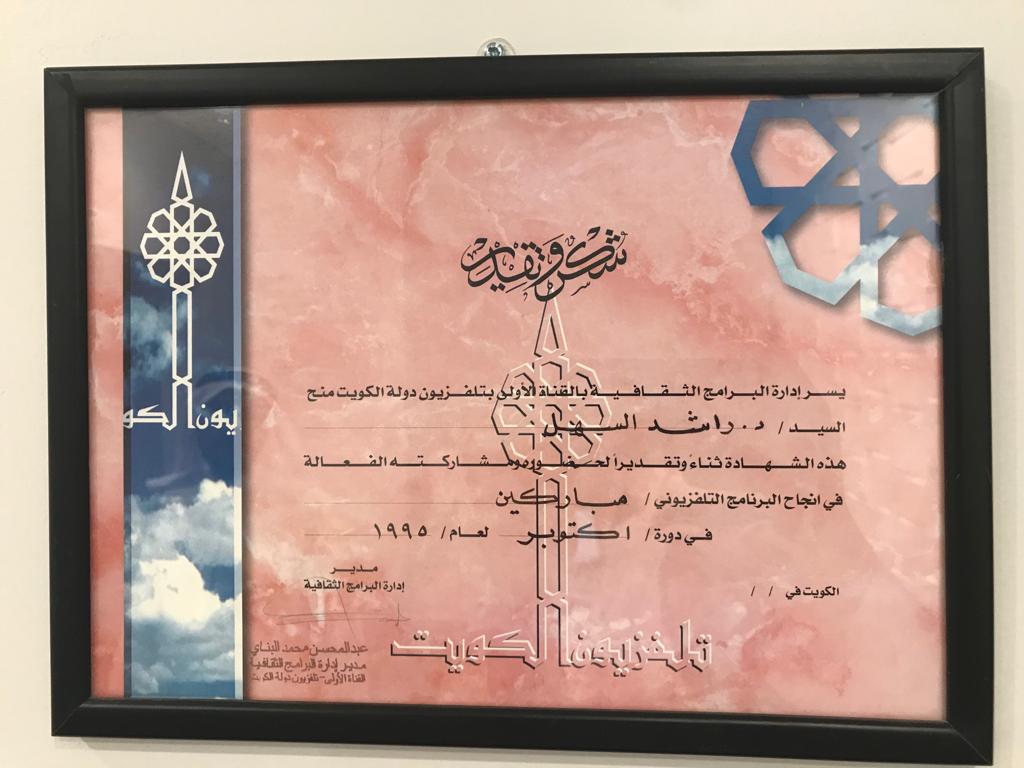 شكر وتقدير
يسر إدارة البرامج الثقافية بالقناة الأولى بتلفزيون دولة الكويت منح
السيد / د. راشد السهل
هذه الشهادة ثناءً وتقديراً لحضوره ومشاركته الفعالة
في انجاح البرنامج التلفزيوني / مباركين
في دورة / اكتوبر لعام / ١٩٩٥
مدير
إدارة البرامج الثقافية
الكويت في / /
عبدالمحسن محمد البناي
مدير إدارة البرامج الثقافية
القناة الأولى - تلفزيون دولة الكويت
تلفزيون الكويت
يون الكو